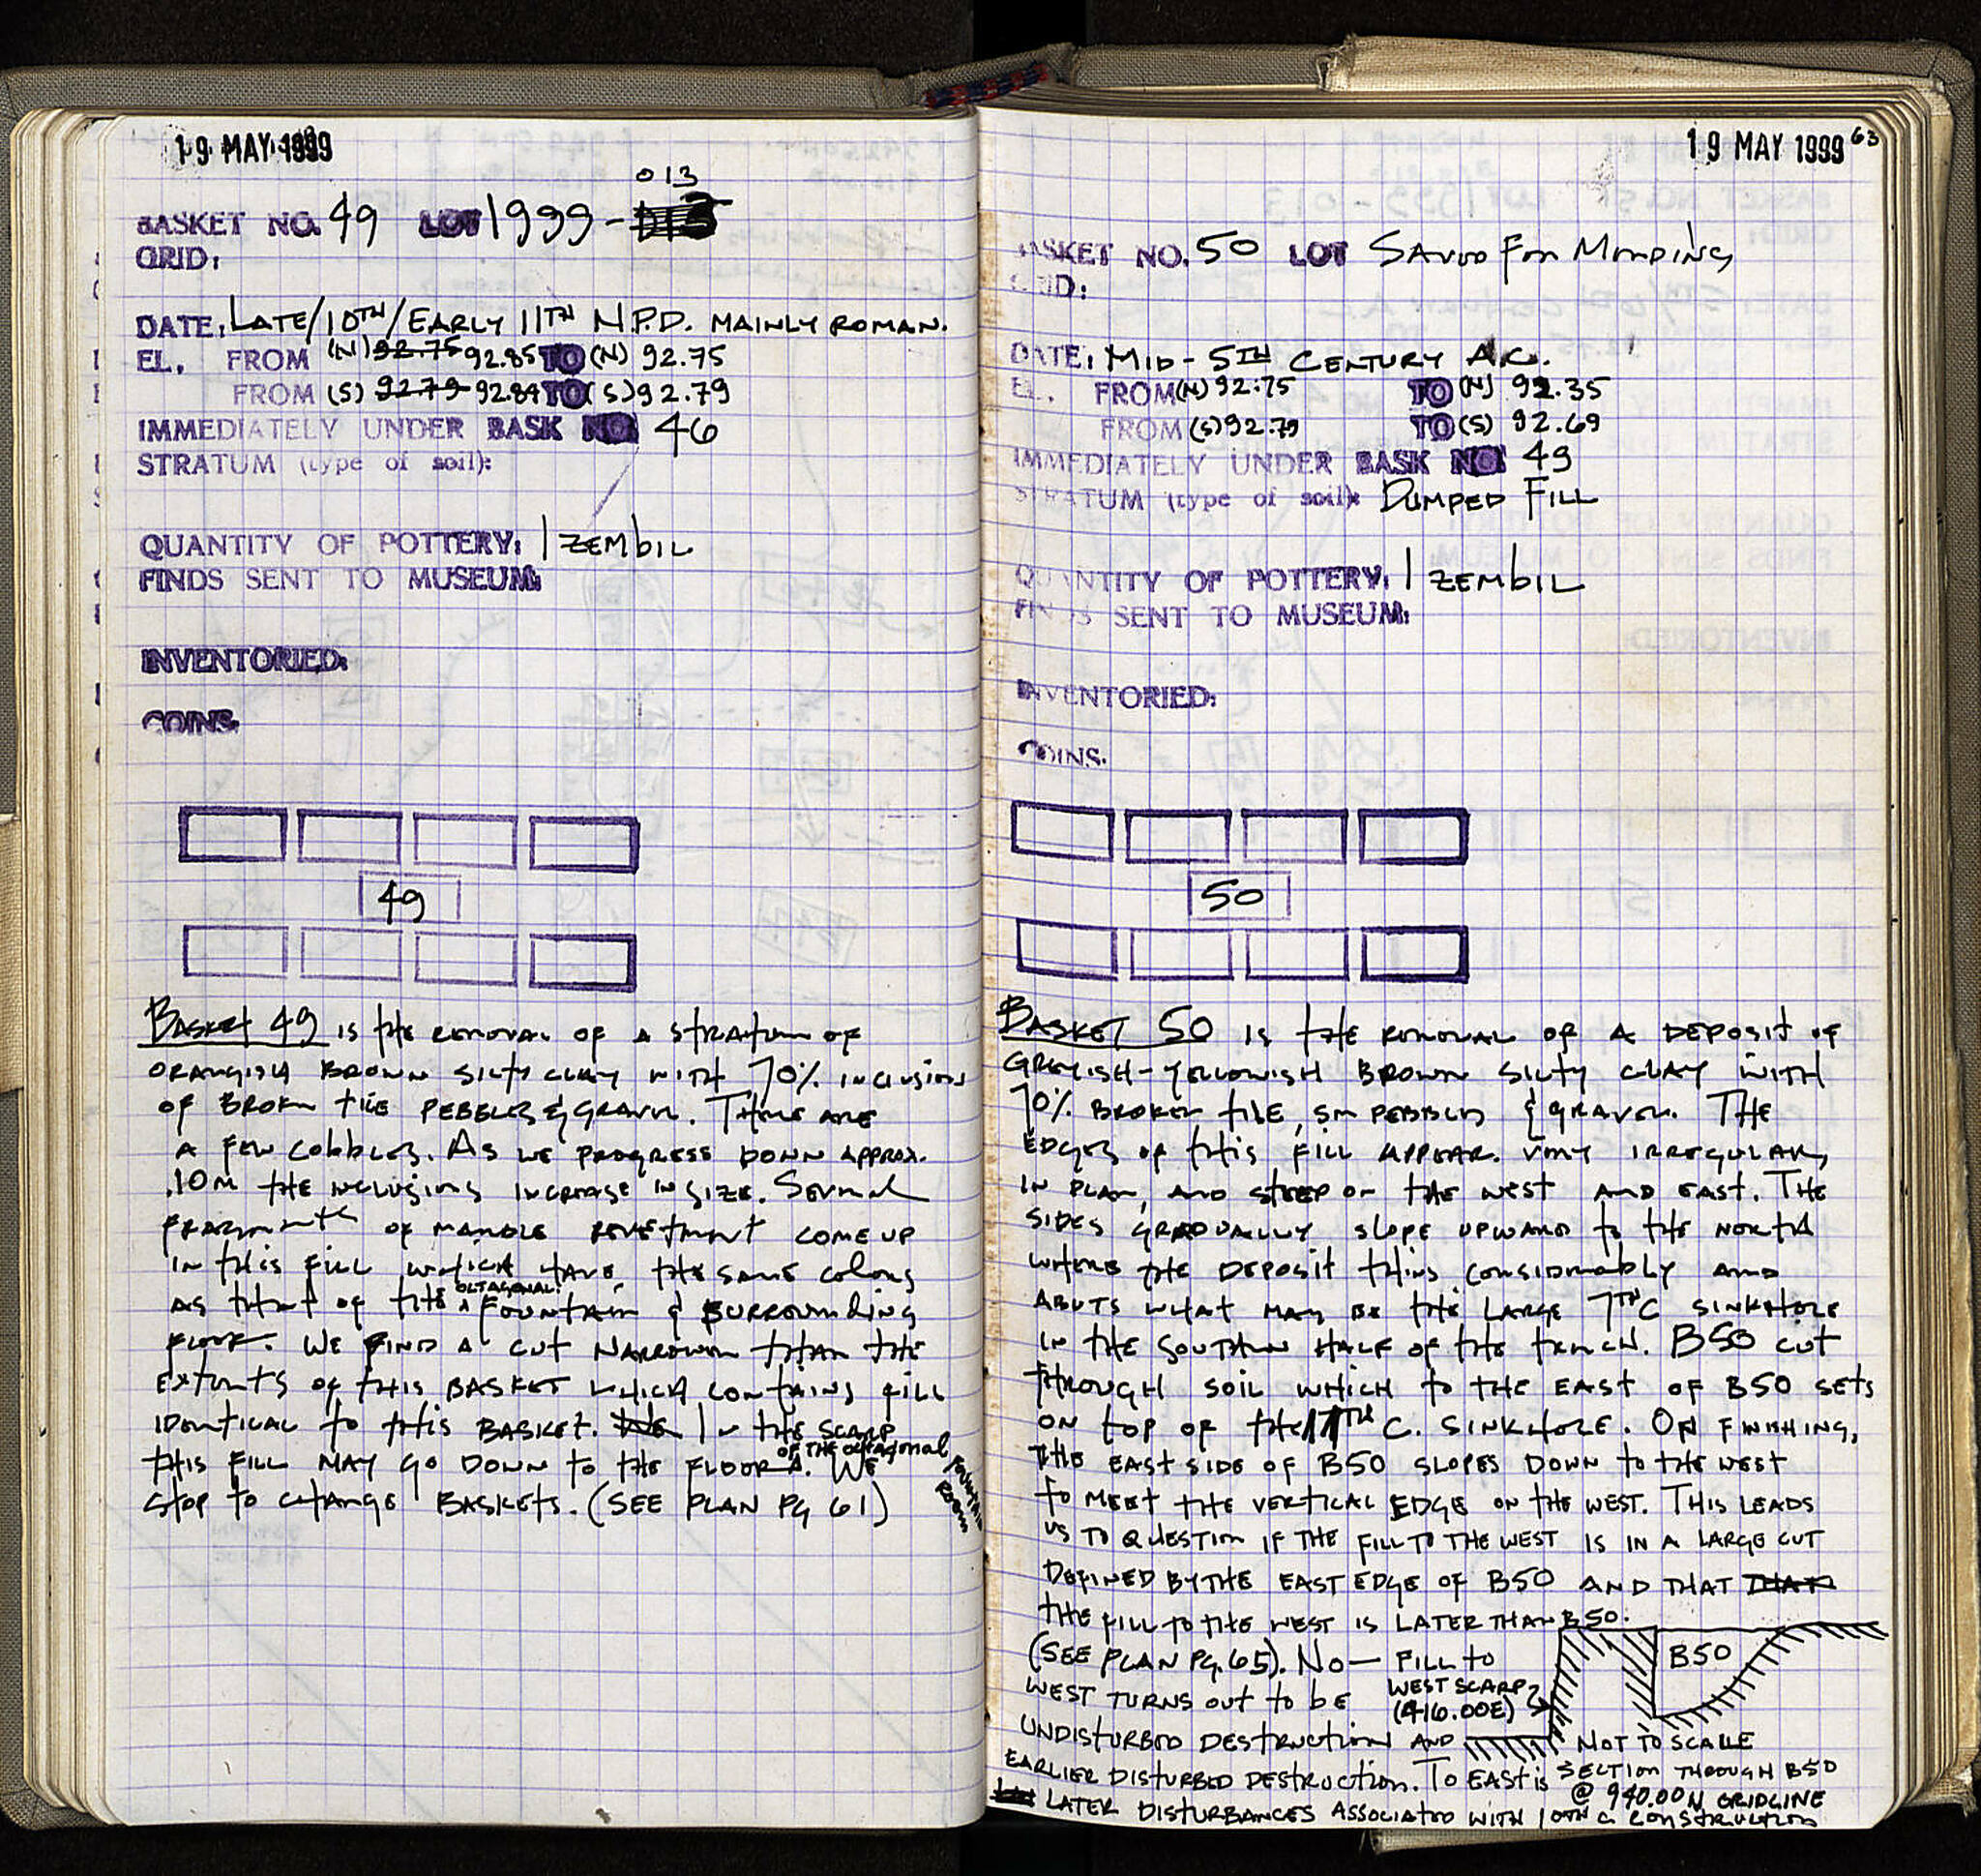 19 MAY 1999
013
BASKET NO. 49 LOT 1999-013
GRID:
DATE: LATE/10TH/EARLY 11TH N.P.D. MAINLY ROMAN.
EL. FROM (N) 92.75 92.85 TO (N) 92.75
FROM (S) 92.79 92.89 TO (S) 92.79
IMMEDIATELY UNDER BASK NO. 46
STRATUM (type of soil):
QUANTITY OF POTTERY: 1 ZEMBIL
FINDS SENT TO MUSEUM:
INVENTORIED:
COINS.
49
BASKET 49 IS THE REMOVAL OF A STRATUM OF
ORANGISH BROWN SILTY CLAY WITH 70% INCLUSIONS
OF BROKEN TILE PEBBLES & GRAVEL. THERE ARE
A FEW COBBLES. AS WE PROGRESS DOWN APPROX.
.10M THE INCLUSIONS INCREASE IN SIZE. SEVERAL
FRAGMENTS OF MARBLE REVETMENT COME UP
IN THIS FILL WHICH HAVE THE SAME COLORS
AS THAT OF THE OCTAGONAL FOUNTAIN & SURROUNDING
FLOOR. WE FIND A CUT NARROWER THAN THE
EXTENTS OF THIS BASKET WHICH CONTAINS FILL
IDENTICAL TO THIS BASKET. WE IN THE SCARP
THIS FILL MAY GO DOWN TO THE FLOOR OF THE OCTAGONAL FOUNTAIN ROOM. WE
STOP TO CHANGE BASKETS. (SEE PLAN PG 61)
19 MAY 1999 63
BASKET NO. 50 LOT SAVED FOR MENDING
GRID:
DATE: MID-5TH CENTURY A.C.
EL. FROM (N) 92.75 TO (N) 92.35
FROM (S) 92.79 TO (S) 92.69
IMMEDIATELY UNDER BASK NO. 49
STRATUM (type of soil): DUMPED FILL
QUANTITY OF POTTERY: 1 ZEMBIL
FINDS SENT TO MUSEUM:
INVENTORIED:
COINS.
50
BASKET 50 IS THE REMOVAL OF A DEPOSIT OF
GREYISH-YELLOWISH BROWN SILTY CLAY WITH
70% BROKEN TILE, SM PEBBLES & GRAVEL. THE
EDGES OF THIS FILL APPEAR VERY IRREGULAR,
IN PLAN, AND STEEP ON THE WEST AND EAST. THE
SIDES GRADUALLY SLOPE UPWARD TO THE NORTH
WHERE THE DEPOSIT THINS CONSIDERABLY AND
ABUTS WHAT MAY BE THE LARGE 7TH C SINKHOLE
IN THE SOUTHERN HALF OF THE TRENCH. B50 CUT
THROUGH SOIL WHICH TO THE EAST OF B50 SETS
ON TOP OF THE 7TH C. SINKHOLE. ON FINISHING,
THE EAST SIDE OF B50 SLOPES DOWN TO THE WEST
TO MEET THE VERTICAL EDGE ON THE WEST. THIS LEADS
US TO QUESTION IF THE FILL TO THE WEST IS IN A LARGE CUT
DEFINED BY THE EAST EDGE OF B50 AND THAT THAT
THE FILL TO THE WEST IS LATER THAN B50.
(SEE PLAN PG. 65). NO— FILL TO
WEST TURNS OUT TO BE
UNDISTURBED DESTRUCTION AND
EARLIER DISTURBED DESTRUCTION. TO EAST IS
LATER DISTURBANCES ASSOCIATED WITH 10TH C CONSTRUCTION
B50
WEST SCARP
(416.00E)
NOT TO SCALE
SECTION THROUGH B50
@ 940.00N GRIDLINE